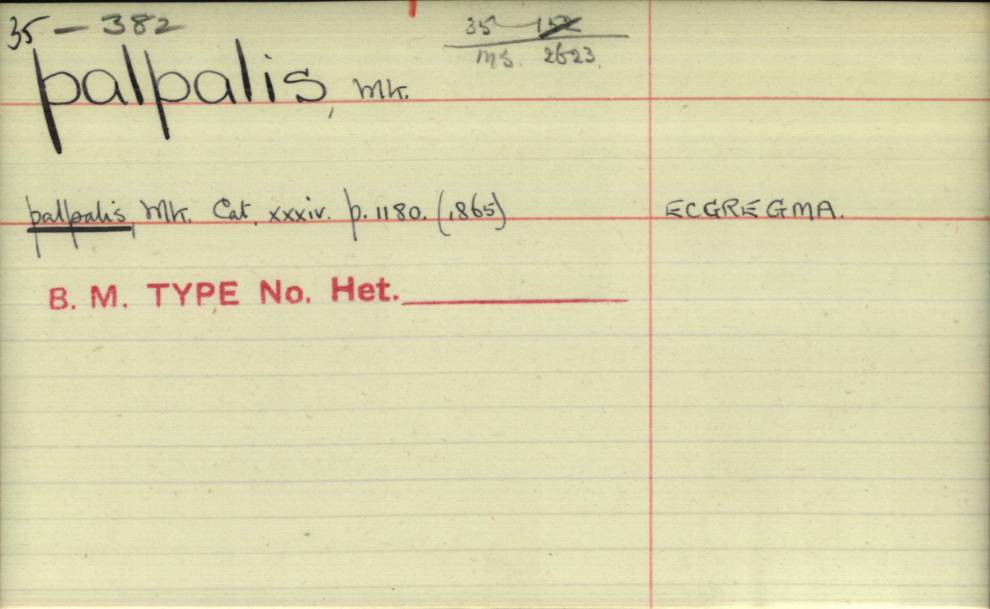 35 — 382
35 — 152
MS. 2623.
palpalis, Wlk.
palpalis, Wlk. Cat. xxxiv. p. 1180. (1865)
ECGREGMA.
B. M. TYPE No. Het.